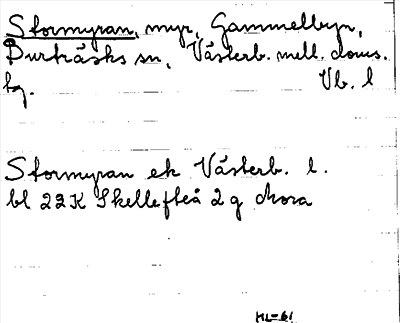 Stormyran, myr, Gammelbyn,
Burträsks sn, Västerb. mell. doms.
tg. Vb. l
Stormyran ek Västerb. l.
bl 22K Skellefteå 2 g Mora
ML-61